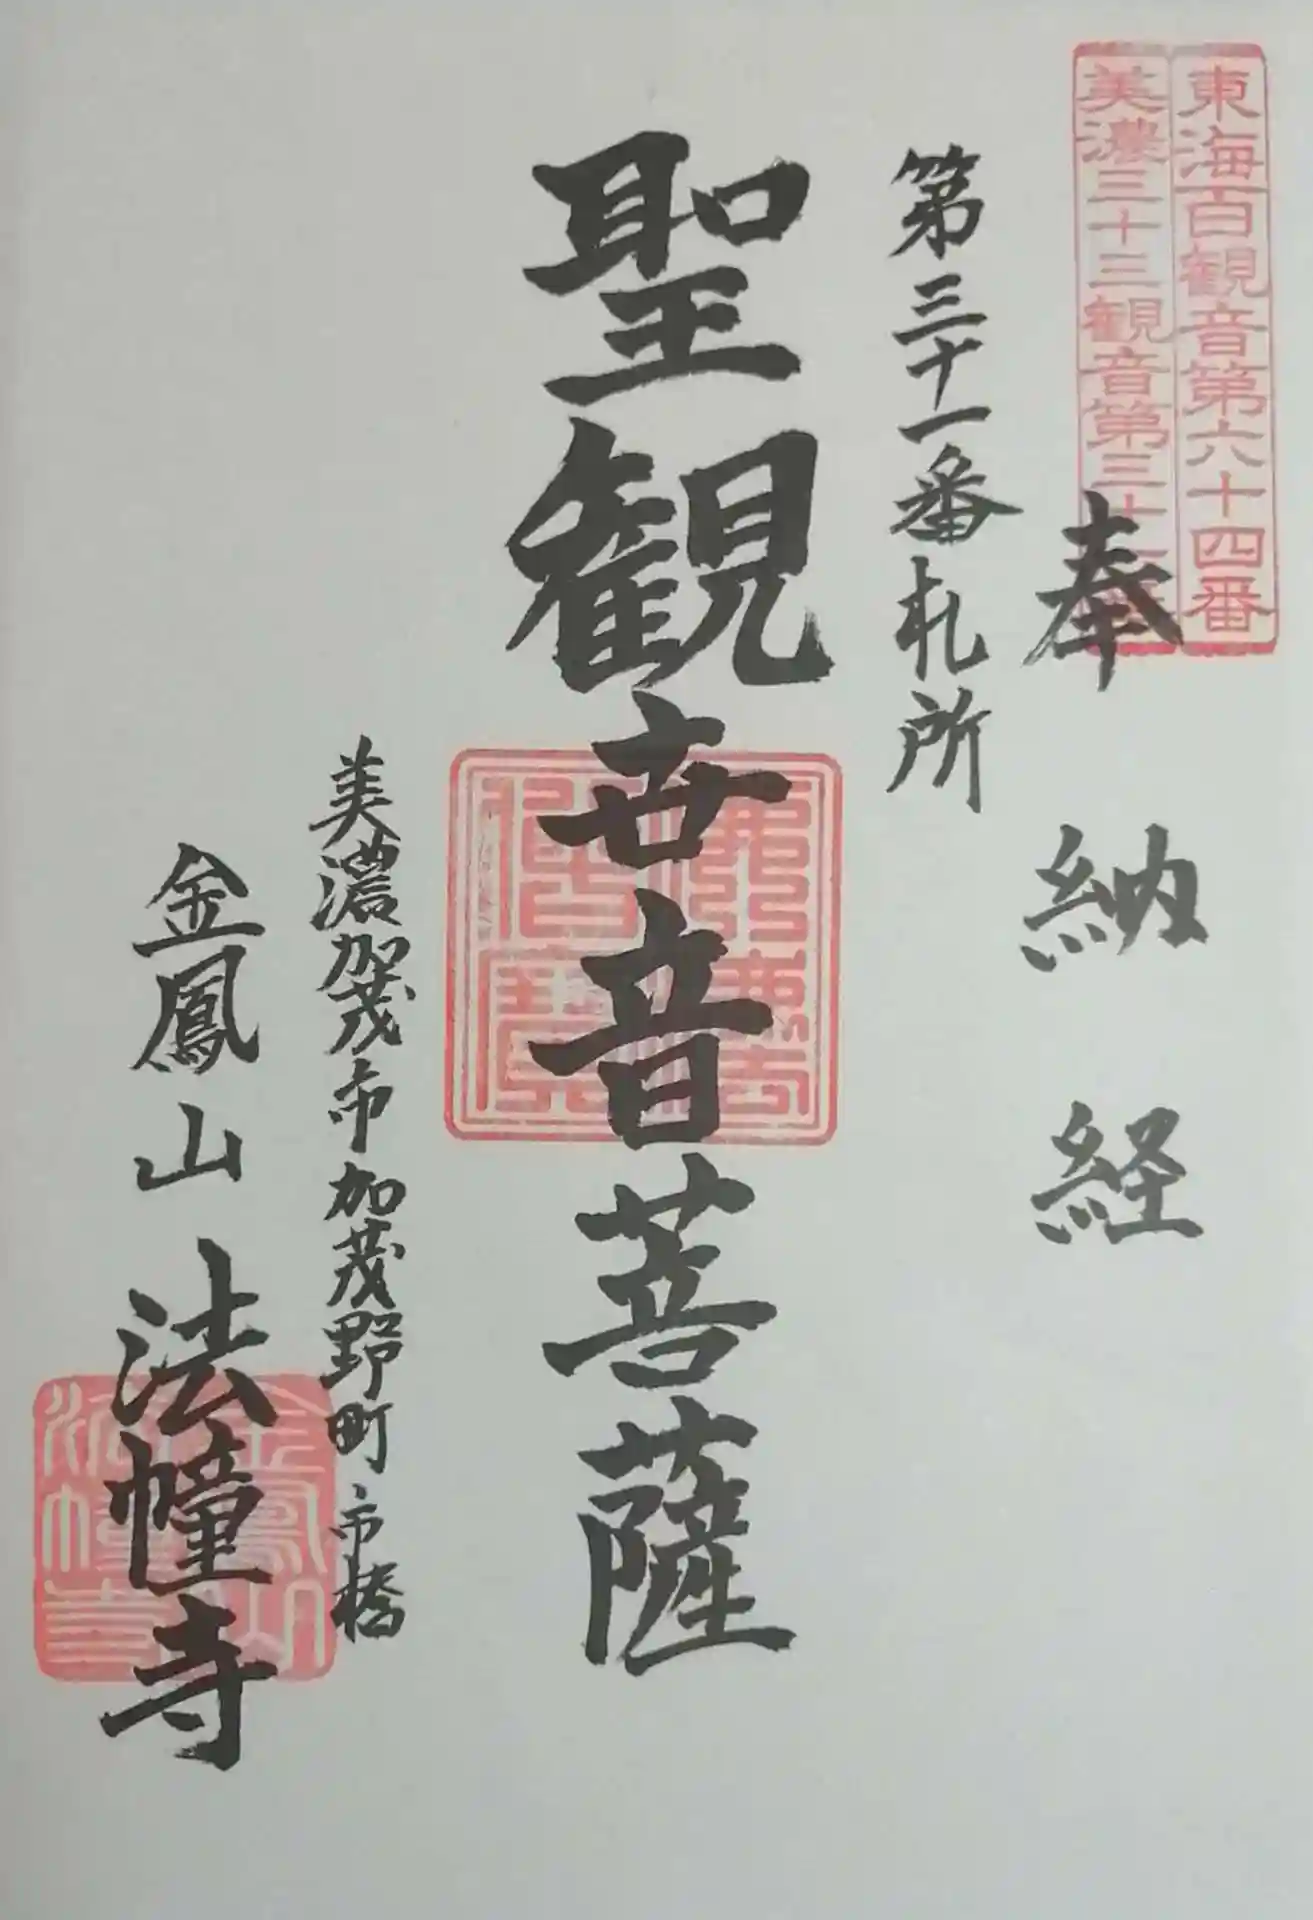 東海百観音第六十四番
美濃三十三観音第三十一番
奉納経
第三十一番札所
聖観世音菩薩
佛法僧寶
美濃加茂市加茂野町市橋
金鳳山法幢寺
金鳳山
法幢寺